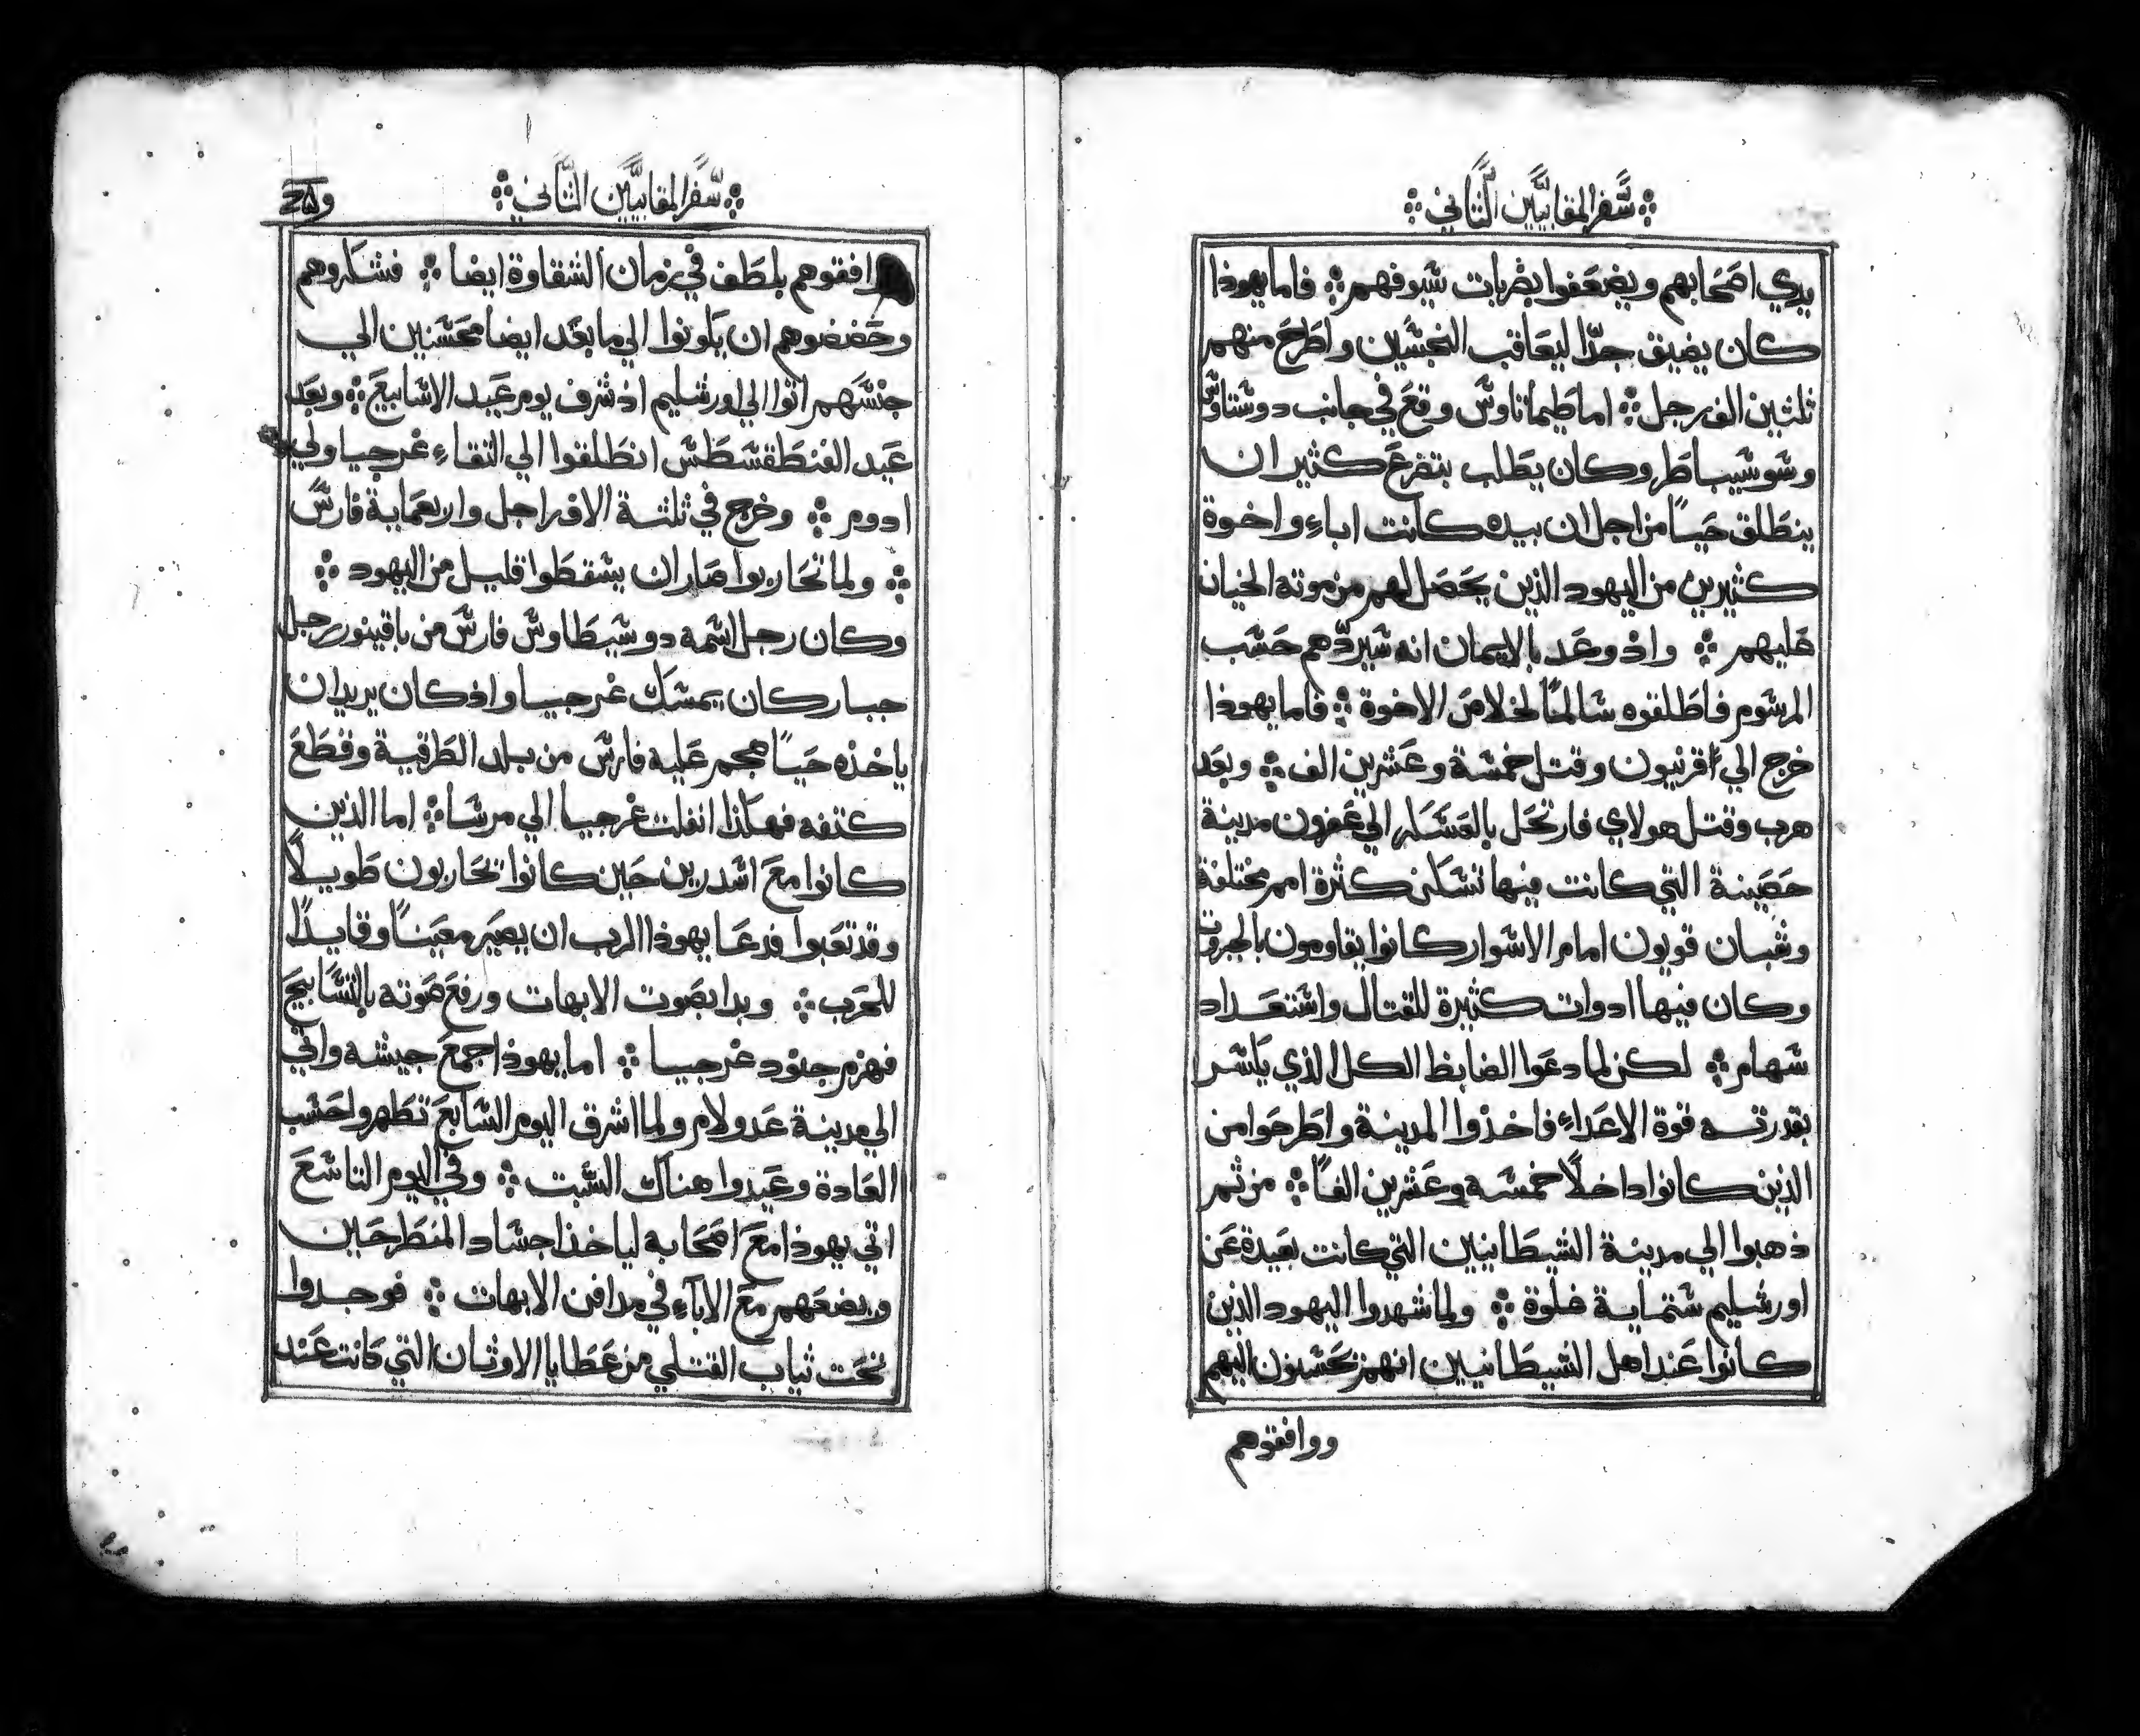 سفر المقابيين الثاني
يدي اصحابهم ويضعفوا بضربات سيوفهم فاما يهوذا
كان يضيق جدّا ليعاقب النجسين واطرح منهم
ثلثين الف رجل اما طيماتاوس وقع في جانب دوسثاوس
وسوسيباطر وكان يطلب بتضرع كثير ان
ينطلق حياً من اجل ان بيده كانت اباء واخوة
كثيرين من اليهود الذين يحصل لهم من موته الخيان
عليهم واذ وعد بالايمان انه سيردّهم حسب
المرسوم فاطلقوه سالماً لخلاص الاخوة فاما يهوذا
خرج الي اقرنيون وقتل خمسة وعشرين الف وبعد
هرب وقتل هولاي فارتحل بالعسكر الي عفرون مدينة
حصينة التي كانت فيها تسكن كثرة امم مختلفة
وشبان قويون امام الاسوار كانوا يقاومون بالجبروت
وكان فيها ادوات كثيرة للقتال واستعداد
سهام لكن لما دعوا الضابط الكل الذي ياسر
بقدرته قوة الاعداء فاخذوا المدينة واطرحوا من
الذين كانوا داخلاً خمسة وعشرين الفاً من ثم
ذهبوا الي مدينة الشيطانيين التي كانت بعيدة عن
اورشليم ستماية غلوة ولما شهدوا اليهود الذين
كانوا عند اهل الشيطانيين انهم يحسنون اليهم
ووافقوهم
سفر المقابيين الثاني
وافقوهم بلطف في زمان الشقاوة ايضا فشكروهم
وحضضوهم ان يكونوا الي ما بعد ايضا محسنين الي
جنسهم اتوا الي اورشليم اذ شرف يوم عيد الاسابيع وبعد
عيد الفنطقسطس انطلقوا الي التقاء غرجيا ولي
ادوم وخرج في ثلثة الاف راجل واربعماية فارس
ولما تحاربوا صار ان يسقطوا قليل من اليهود
وكان رجل اسمه دوسيطاوس فارس من باقينور رجل
جبار كان يمسك غرجيا واذ كان يريد ان
ياخذه حياً هجم عليه فارس من بلد الطرقية وقطع
كتفه فهكذا انفلت غرجيا الي مرسا اما الذين
كانوا مع اسدرين حين كانوا تحاربون طويلاً
وقد تعبوا فدعا يهوذا الرب ان يصير معيناً وقايداً
للحرب وبدا بصوت الابهات ورفع صوته بالتسابيح
فهزم جنود غرجيا اما يهوذا جمع جيشه واتي
الي مدينة عدولام ولما اشرق اليوم السابع تطهروا حسب
العادة وعيدوا هناك السبت وفي اليوم التاسع
اتي يهوذا مع اصحابه لياخذ اجساد المنطرحين
ويضعهم مع الابآء في مدافن الابهات فوجدوا
تحت ثياب القتلي من عطايا الاوثان التي كانت عند